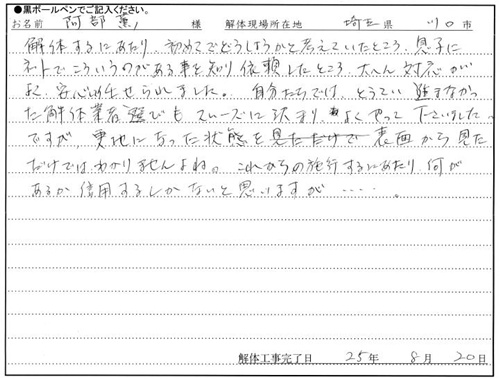 ●黒ボールペンでご記入ください。
お名前 阿部 薫 様 解体現場所在地 埼玉県 川口市
解体するにあたり、初めてでどうしようかと考えていたところ、息子に
ネットでこういうのがある事を知り依頼したところ、大へん対応が
よく、安心して任せられました。 自分たちでは、とうてい進まなかっ
た解体業者選びもスムーズに決まり、よくやって下さいました。
ですが、更地になった状態を見ただけで表面から見た
だけではわかりませんよね。これからの施行するにあたり何が
あるか信用するしかないと思いますが……。
解体工事完了日 25年 8月 20日